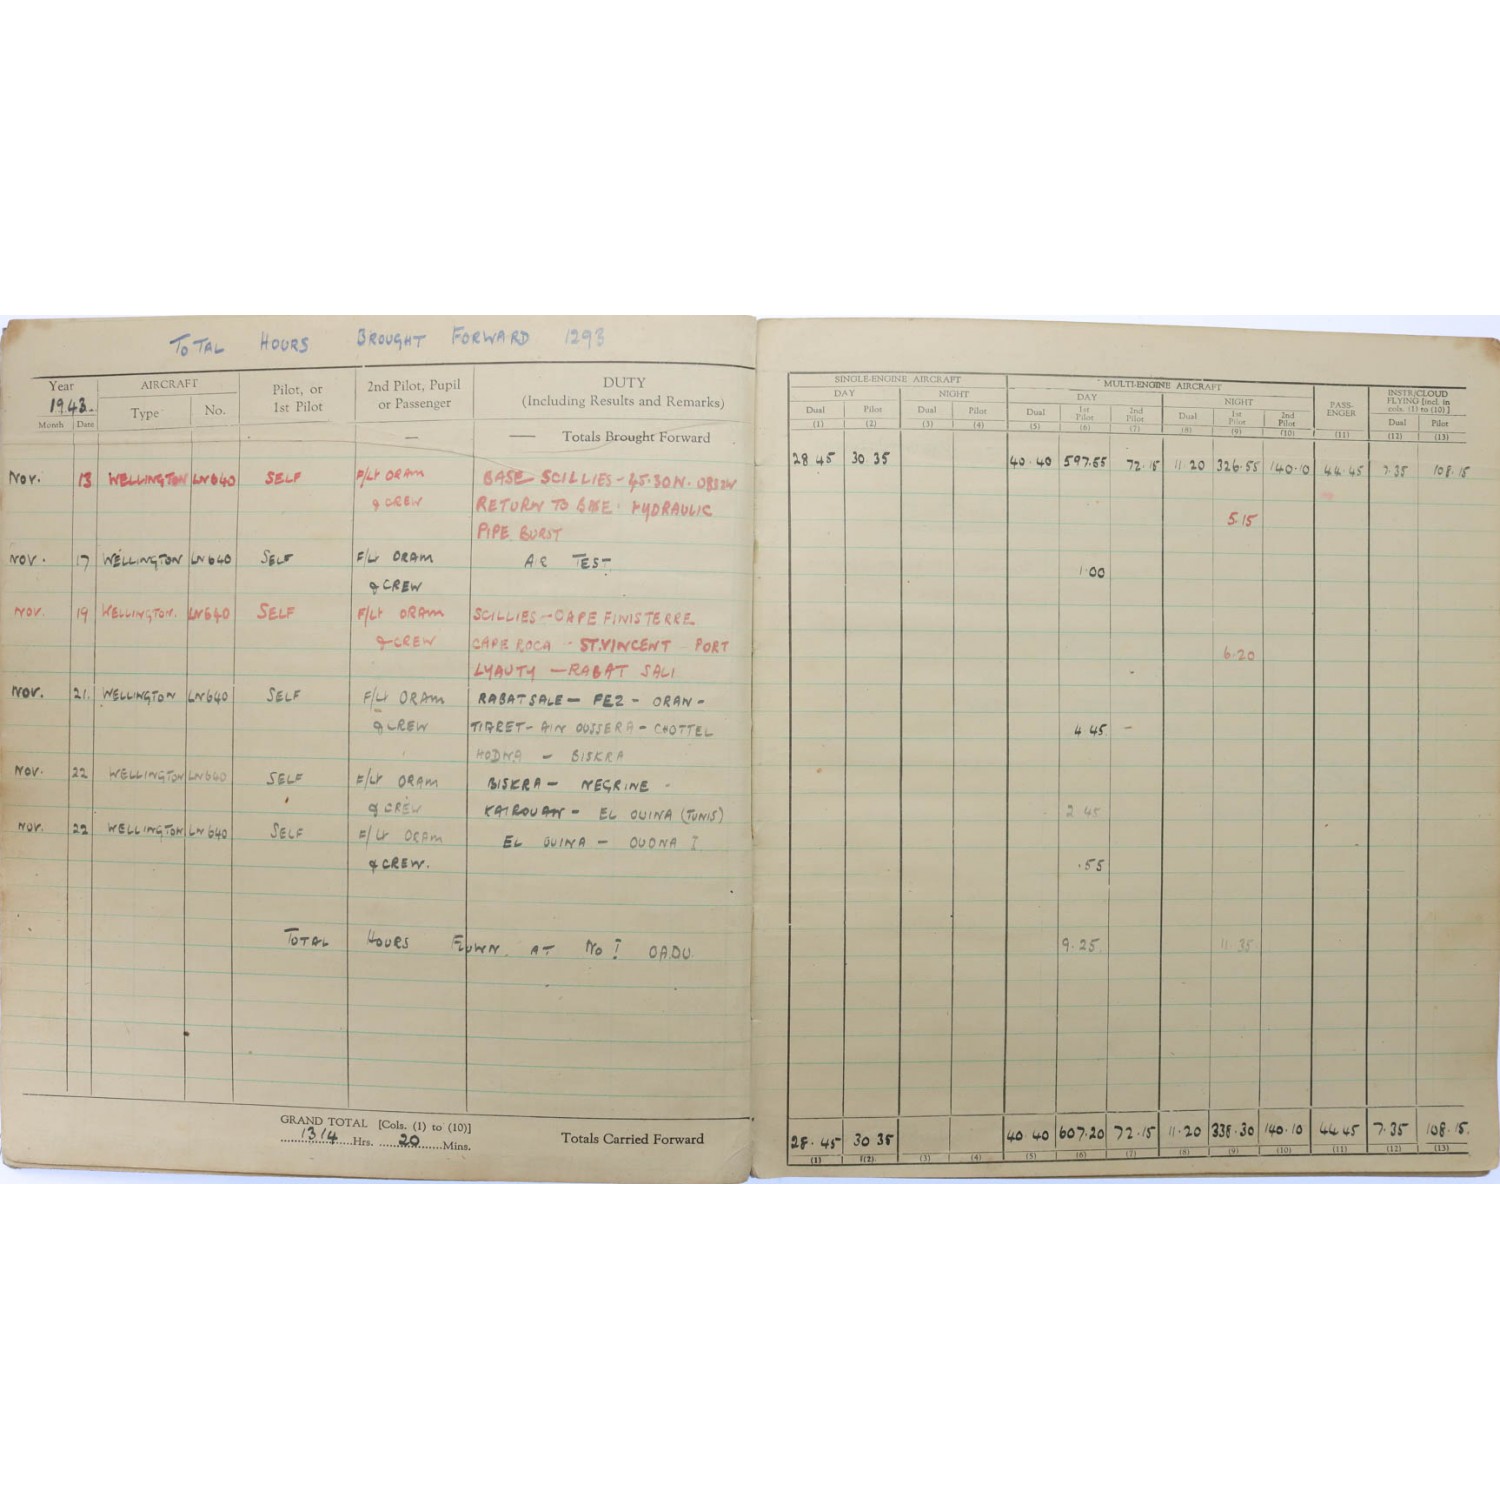 TOTAL HOURS BROUGHT FORWARD 1293
Year 1943. AIRCRAFT Pilot, or 1st Pilot 2nd Pilot, Pupil or Passenger DUTY (Including Results and Remarks)
Month Date Type No.
— —— Totals Brought Forward
NOV. 13 WELLINGTON LN640 SELF F/LT ORAM BASE SCILLIES - 45.30N.
& CREW RETURN TO BASE. HYDRAULIC
PIPE BURST
NOV. 17 WELLINGTON LN640 SELF F/LT ORAM A.C TEST
& CREW
NOV. 19 WELLINGTON. LN640 SELF F/LT ORAM SCILLIES - CAPE FINISTERRE
& CREW CAPE ROCA - ST.VINCENT - PORT
LYAUTY - RABAT SALI
NOV. 21. WELLINGTON LN640 SELF F/LT ORAM RABAT SALE - FEZ - ORAN -
& CREW TIARET - AIN OUSSERA - CHOTTEL
HODNA - BISKRA
NOV. 22 WELLINGTON LN640 SELF F/LT ORAM BISKRA - NEGRINE -
& CREW KAIROUAN - EL OUINA (TUNIS)
NOV. 22 WELLINGTON LN640 SELF F/LT ORAM EL OUINA - OUDNA I
& CREW.
TOTAL HOURS FLOWN AT NO I OADU
GRAND TOTAL [Cols. (1) to (10)]
1314 Hrs. 20 Mins.
Totals Carried Forward
SINGLE-ENGINE AIRCRAFT MULTI-ENGINE AIRCRAFT PASS-ENGER INSTR/CLOUD FLYING [incl. in cols. (1) to (10)]
DAY NIGHT DAY NIGHT
Dual Pilot Dual Pilot Dual 1st Pilot 2nd Pilot Dual 1st Pilot 2nd Pilot Dual Pilot
(1) (2) (3) (4) (5) (6) (7) (8) (9) (10) (11) (12) (13)
28 45 30 35 40.40 597.55 72.15 11.20 326.55 140.10 44.45 7.35 108.15
5.15
1.00
6.20
4 45 -
2 45
.55
9.25. 11 35
28.45 30 35 40 40 607.20 72.15 11.20 338.30 140.10 44.45 7.35 108.15.
(1) (2) (3) (4) (5) (6) (7) (8) (9) (10) (11) (12) (13)